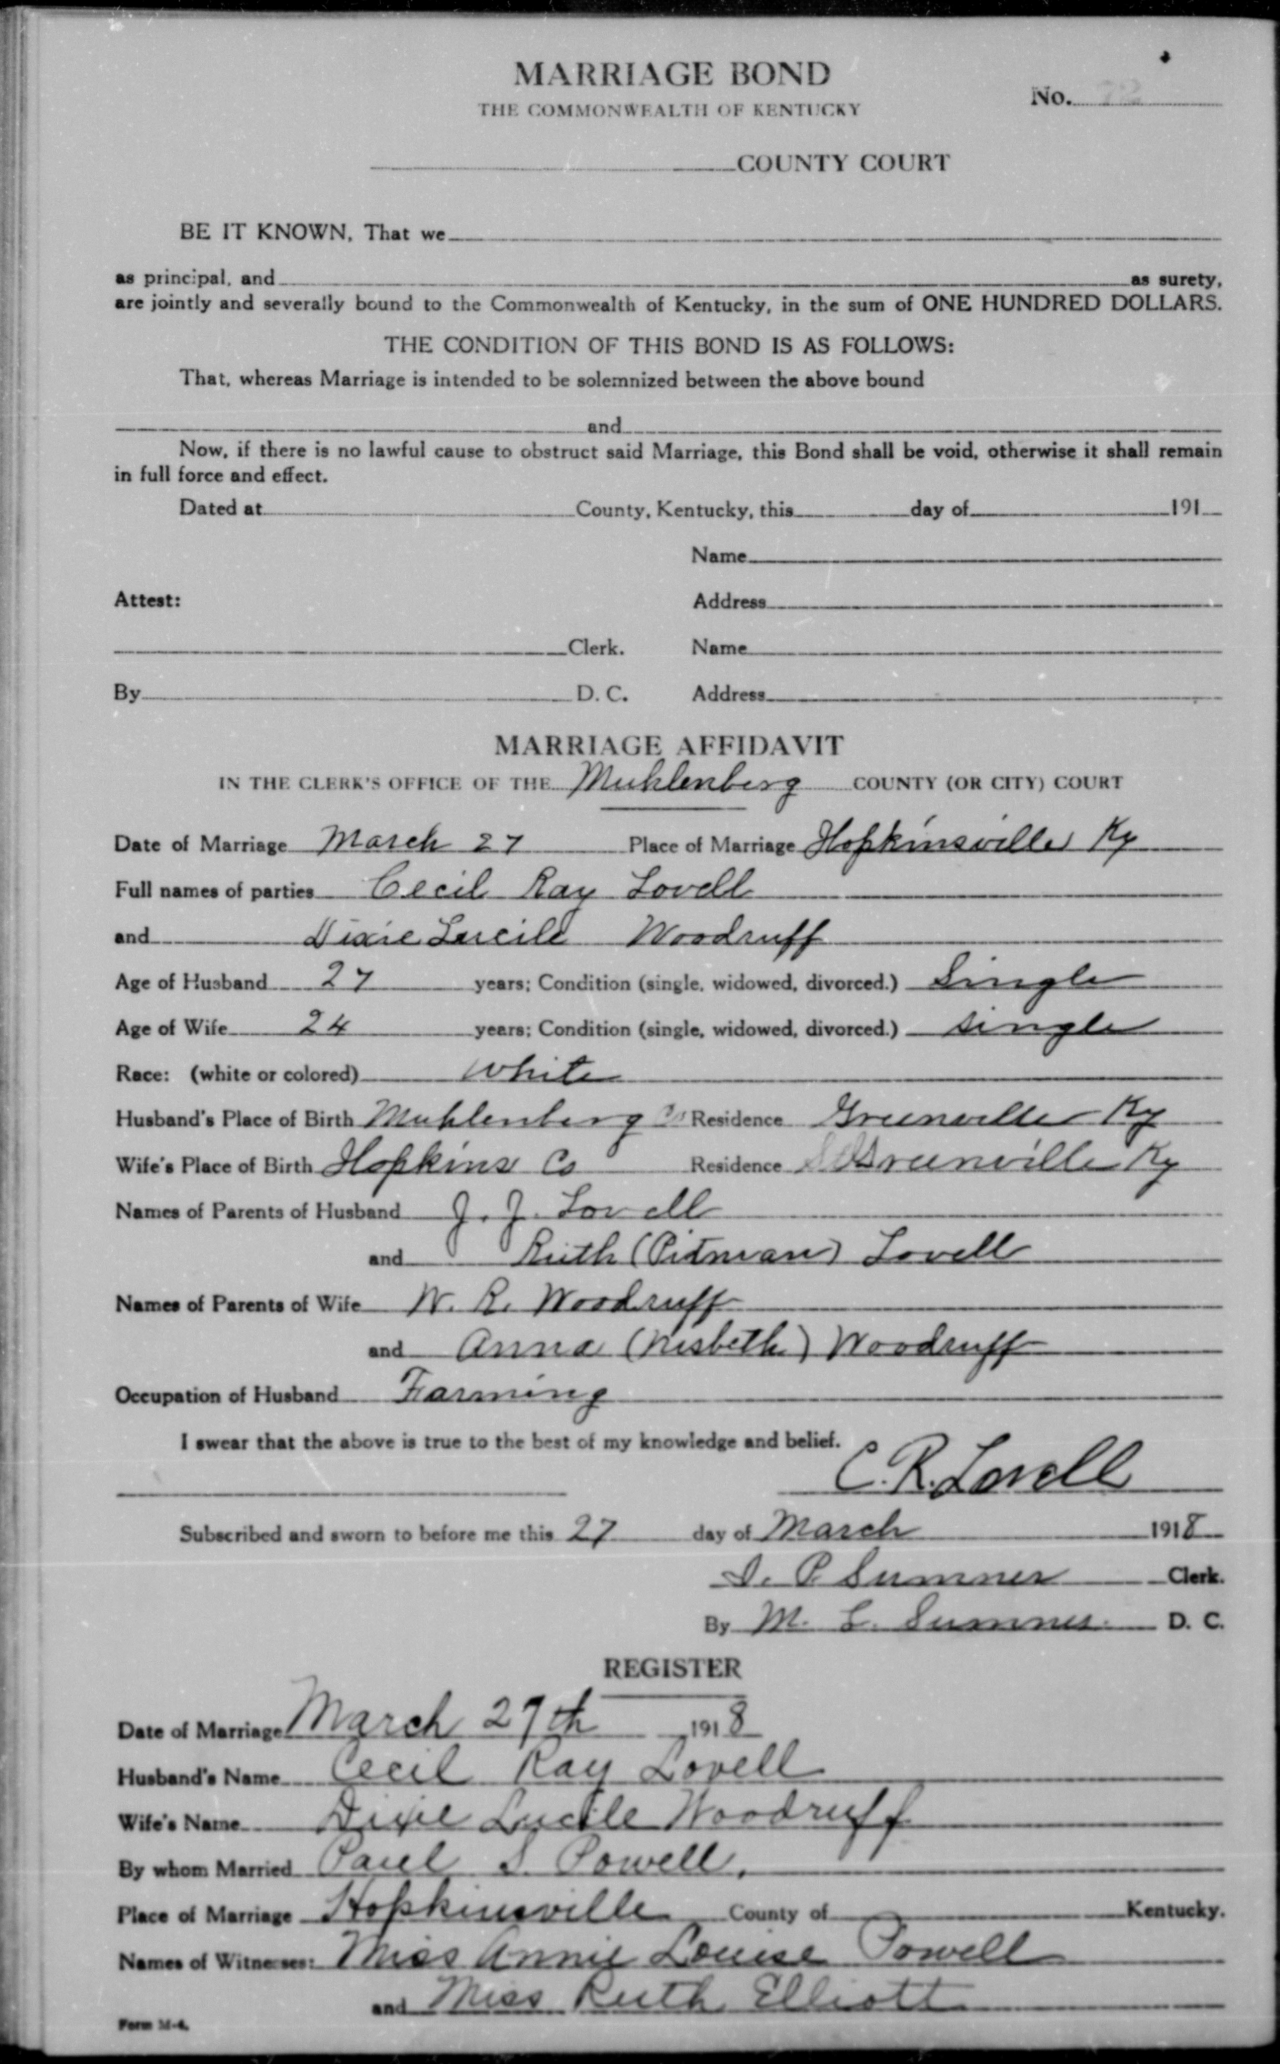 MARRIAGE BOND
THE COMMONWEALTH OF KENTUCKY
No. 72
COUNTY COURT
BE IT KNOWN, That we
as principal, and as surety,
are jointly and severally bound to the Commonwealth of Kentucky, in the sum of ONE HUNDRED DOLLARS.
THE CONDITION OF THIS BOND IS AS FOLLOWS:
That, whereas Marriage is intended to be solemnized between the above bound
and
Now, if there is no lawful cause to obstruct said Marriage, this Bond shall be void, otherwise it shall remain
in full force and effect.
Dated at County, Kentucky, this day of 191
Name
Attest: Address
Clerk. Name
By D. C. Address
MARRIAGE AFFIDAVIT
IN THE CLERK'S OFFICE OF THE Muhlenberg COUNTY (OR CITY) COURT
Date of Marriage March 27 Place of Marriage Hopkinsville Ky
Full names of parties Cecil Ray Lovell
and Dixie Lucile Woodruff
Age of Husband 27 years; Condition (single, widowed, divorced.) Single
Age of Wife 24 years; Condition (single, widowed, divorced.) single
Race: (white or colored) white
Husband's Place of Birth Muhlenberg Co Residence Greenville Ky
Wife's Place of Birth Hopkins Co Residence Greenville Ky
Names of Parents of Husband J. J. Lovell
and Ruth (Pitman) Lovell
Names of Parents of Wife W. R. Woodruff
and Anna (Nisbeth) Woodruff
Occupation of Husband Farming
I swear that the above is true to the best of my knowledge and belief.
C. R. Lovell
Subscribed and sworn to before me this 27 day of March 1918
P. Sumner Clerk.
By M. L. Sumner. D. C.
REGISTER
Date of Marriage March 27th 1918
Husband's Name Cecil Ray Lovell
Wife's Name Dixie Lucile Woodruff
By whom Married Paul S. Powell.
Place of Marriage Hopkinsville County of Kentucky.
Names of Witnesses: Miss Annie Louise Powell
and Miss Ruth Elliott
Form M-4.